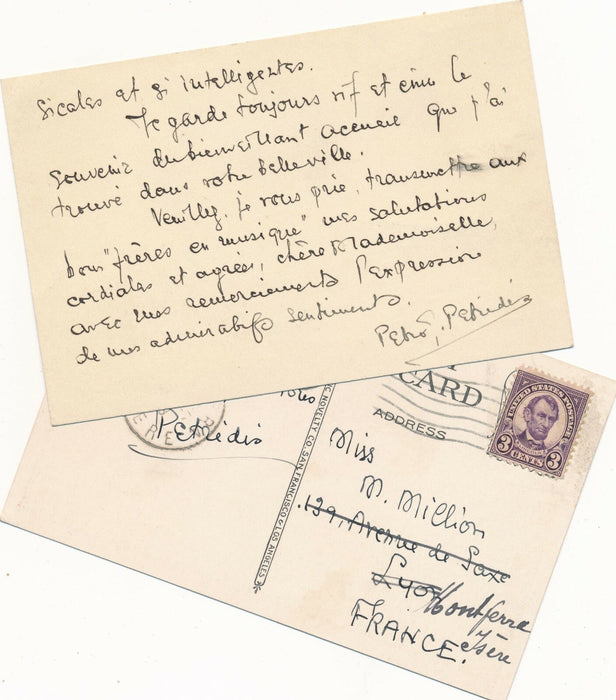 sicales et si intelligentes.
Je garde toujours vif et ému le
souvenir du bienveillant accueil que j'ai
trouvé dans votre belle ville.
Veuillez, je vous prie, transmettre aux
bons "frères en musique" mes salutations
cordiales et agréez, chère Mademoiselle,
avec mes remerciements l'expression
de mes admiratifs sentiments.
Petro, Petridis
CARD
ADDRESS
UNITED STATES POSTAGE
3 CENTS 3
Petridis
NOVELTY CO. SAN FRANCISCO & LOS ANGELES
Miss
M. Million
139, Avenue de Saxe
Lyon Montferra
FRANCE. Isère